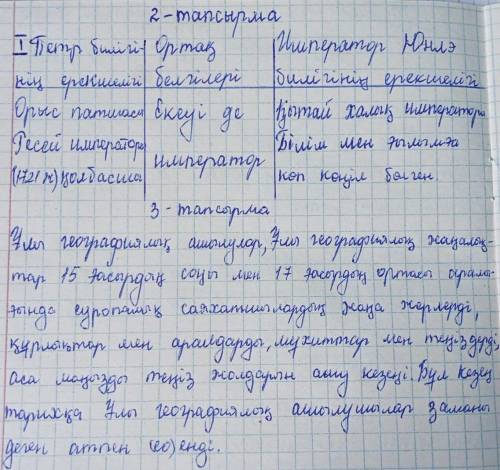 2-тапсырма
I Петр билігі- Ортақ Император Юнлэ
нің ерекшелігі белгілері билігінің ерекшелігі
Орыс патшасы Екеуі де Қытай халық императоры
Ресей императоры император Білім мен ғылымға
(1721 ж) қолбасшы көп көңіл бөлген.
3-тапсырма
Ұлы географиялық ашылулар, Ұлы географиялық жаңалық-
тар 15 ғасырдың соңы мен 17 ғасырдың ортасы аралы-
ғында еуропалық саяхатшылардың жаңа жерлерді,
құрлықтар мен аралдарды, мұхиттар мен теңіздерді,
аса маңызды теңіз жолдарын ашу кезеңі. Бұл кезең
тарихқа Ұлы географиялық ашылушылар заманы
деген атпен (ео)енді.